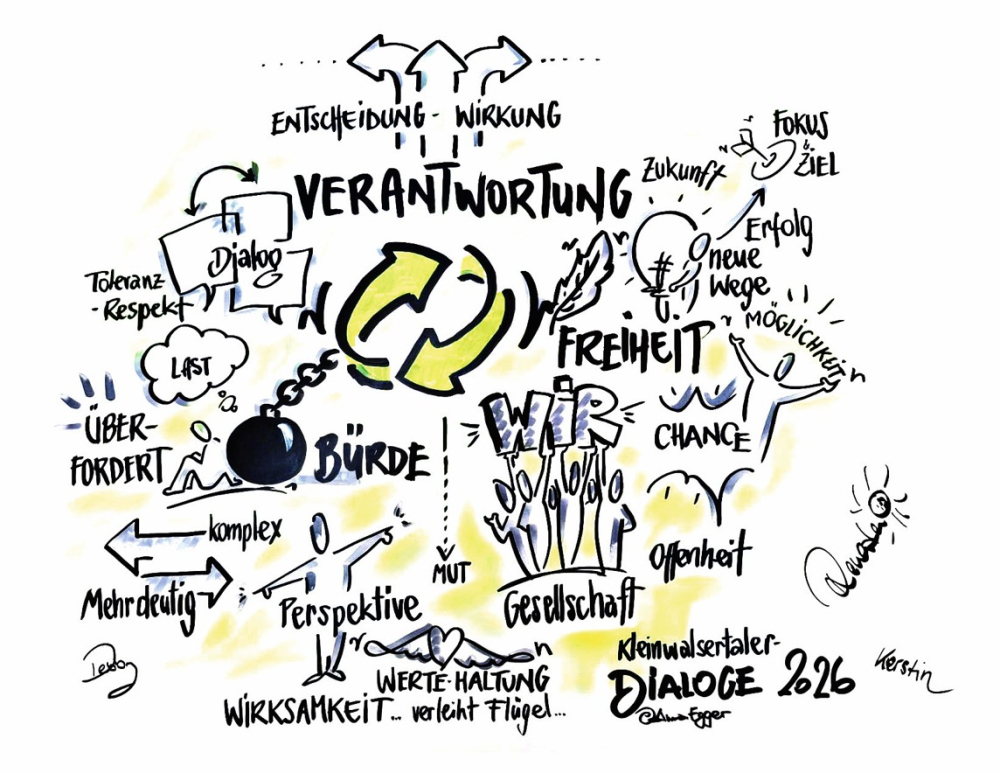 ENTSCHEIDUNG - WIRKUNG
VERANTWORTUNG
Zukunft
FOKUS
&
ZIEL
Erfolg
neue
Wege
Dialog
Toleranz-
-Respekt
FREIHEIT
MÖGLICHKEIT
LAST
ÜBER-
FORDERT
BÜRDE
WIR
CHANCE
komplex
Mehrdeutig
Perspektive
MUT
Gesellschaft
Offenheit
WERTE-HALTUNG
WIRKSAMKEIT... verleiht Flügel...
Kleinwalsertaler-
DIALOGE 2026
Egger
Kerstin